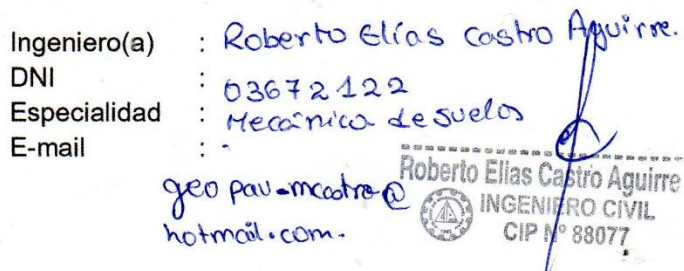 Ingeniero(a) : Roberto Elías Castro Aguirre.
DNI : 03672122
Especialidad : Mecánica de suelos
E-mail : -
hotmail.com.
Roberto Elias Castro Aguirre
INGENIERO CIVIL
CIP Nº 88077